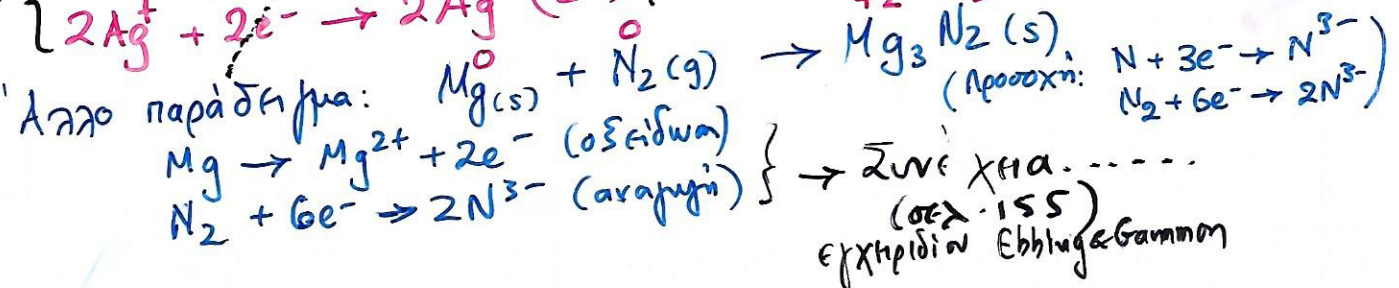 2Ag⁺ + 2e⁻ → 2Ag (
+2
0 0
Άλλο παράδειγμα: Mg(s) + N₂(g) → Mg₃N₂(s)
(Προσοχή: N + 3e⁻ → N³⁻
N₂ + 6e⁻ → 2N³⁻)
Mg → Mg²⁺ + 2e⁻ (οξείδωση)
N₂ + 6e⁻ → 2N³⁻ (αναγωγή) } → Συνέχεια.......
(σελ. 155)
εγχειρίδιον Ebbing & Gammon